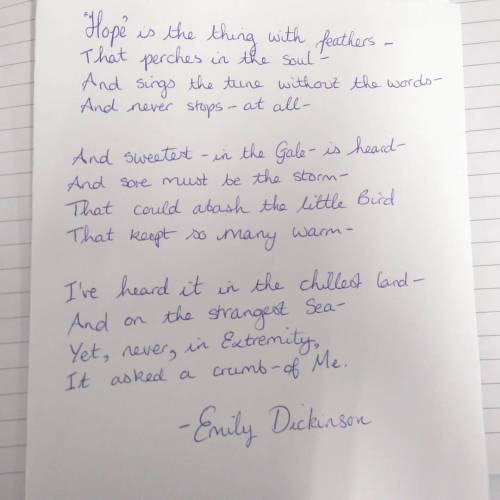 "Hope" is the thing with feathers -
That perches in the soul -
And sings the tune without the words -
And never stops - at all -
And sweetest - in the Gale - is heard -
And sore must be the storm -
That could abash the little Bird
That keept so many warm -
I've heard it in the chillest land -
And on the strangest Sea -
Yet, never, in Extremity,
It asked a crumb - of Me.
- Emily Dickinson